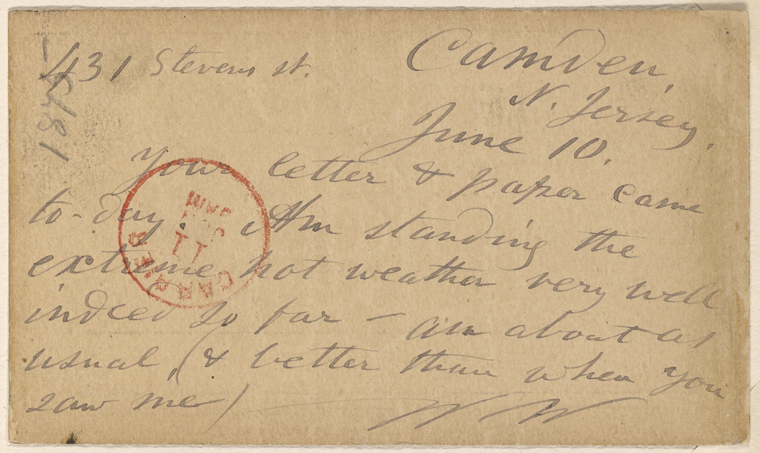 431 Stevens st.
Camden,
N. Jersey,
June 10.
Your letter & paper came
to-day. Am standing the
extreme hot weather very well
indeed so far — am about as
usual, (& better than when you
saw me)
W W
CARRIER
JUN
11